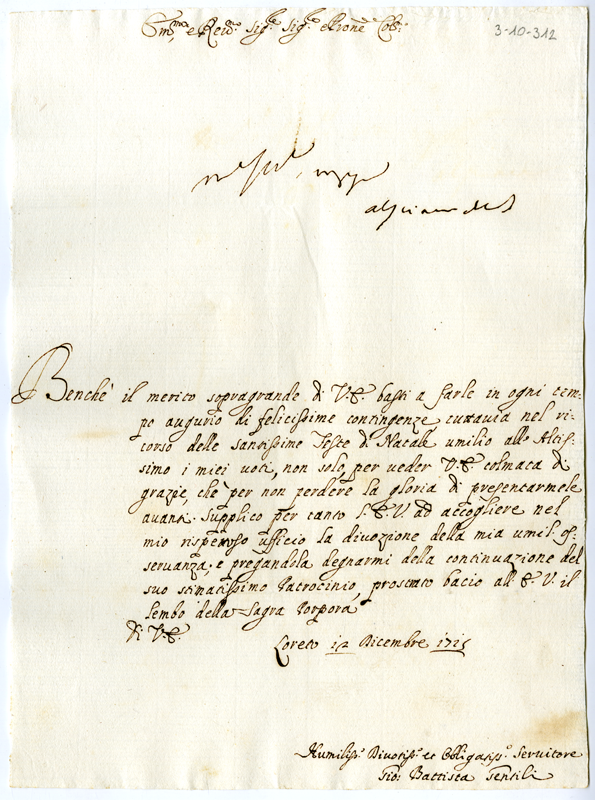 Em.mo e Rev.mo Sig.r Sig.r e Prone Col.mo
3-10-312
Benchè il merito sopragrande di V.E. basti a farle in ogni tem-
po augurio di felicissime contingenze tuttavia nel ri-
corso delle santissime Feste di Natale umilio all'Altis-
simo i miei voti, non solo per veder V.E. colmata di
grazie, che per non perdere la gloria di presentarmele
avanti. Supplico per tanto l'E.V. ad accogliere nel
mio rispettoso ufficio la divozione della mia umil. os-
servanza, e pregandola degnarmi della continuazione del
suo stimatissimo Patrocinio, prostrato bacio all'E.V. il
lembo della Sagra Porpora
Di V.E.
Loreto 12 Dicembre 1715
Humiliss.o Divotiss.o et Obligatiss.o Servitore
Gio: Battista Gentili